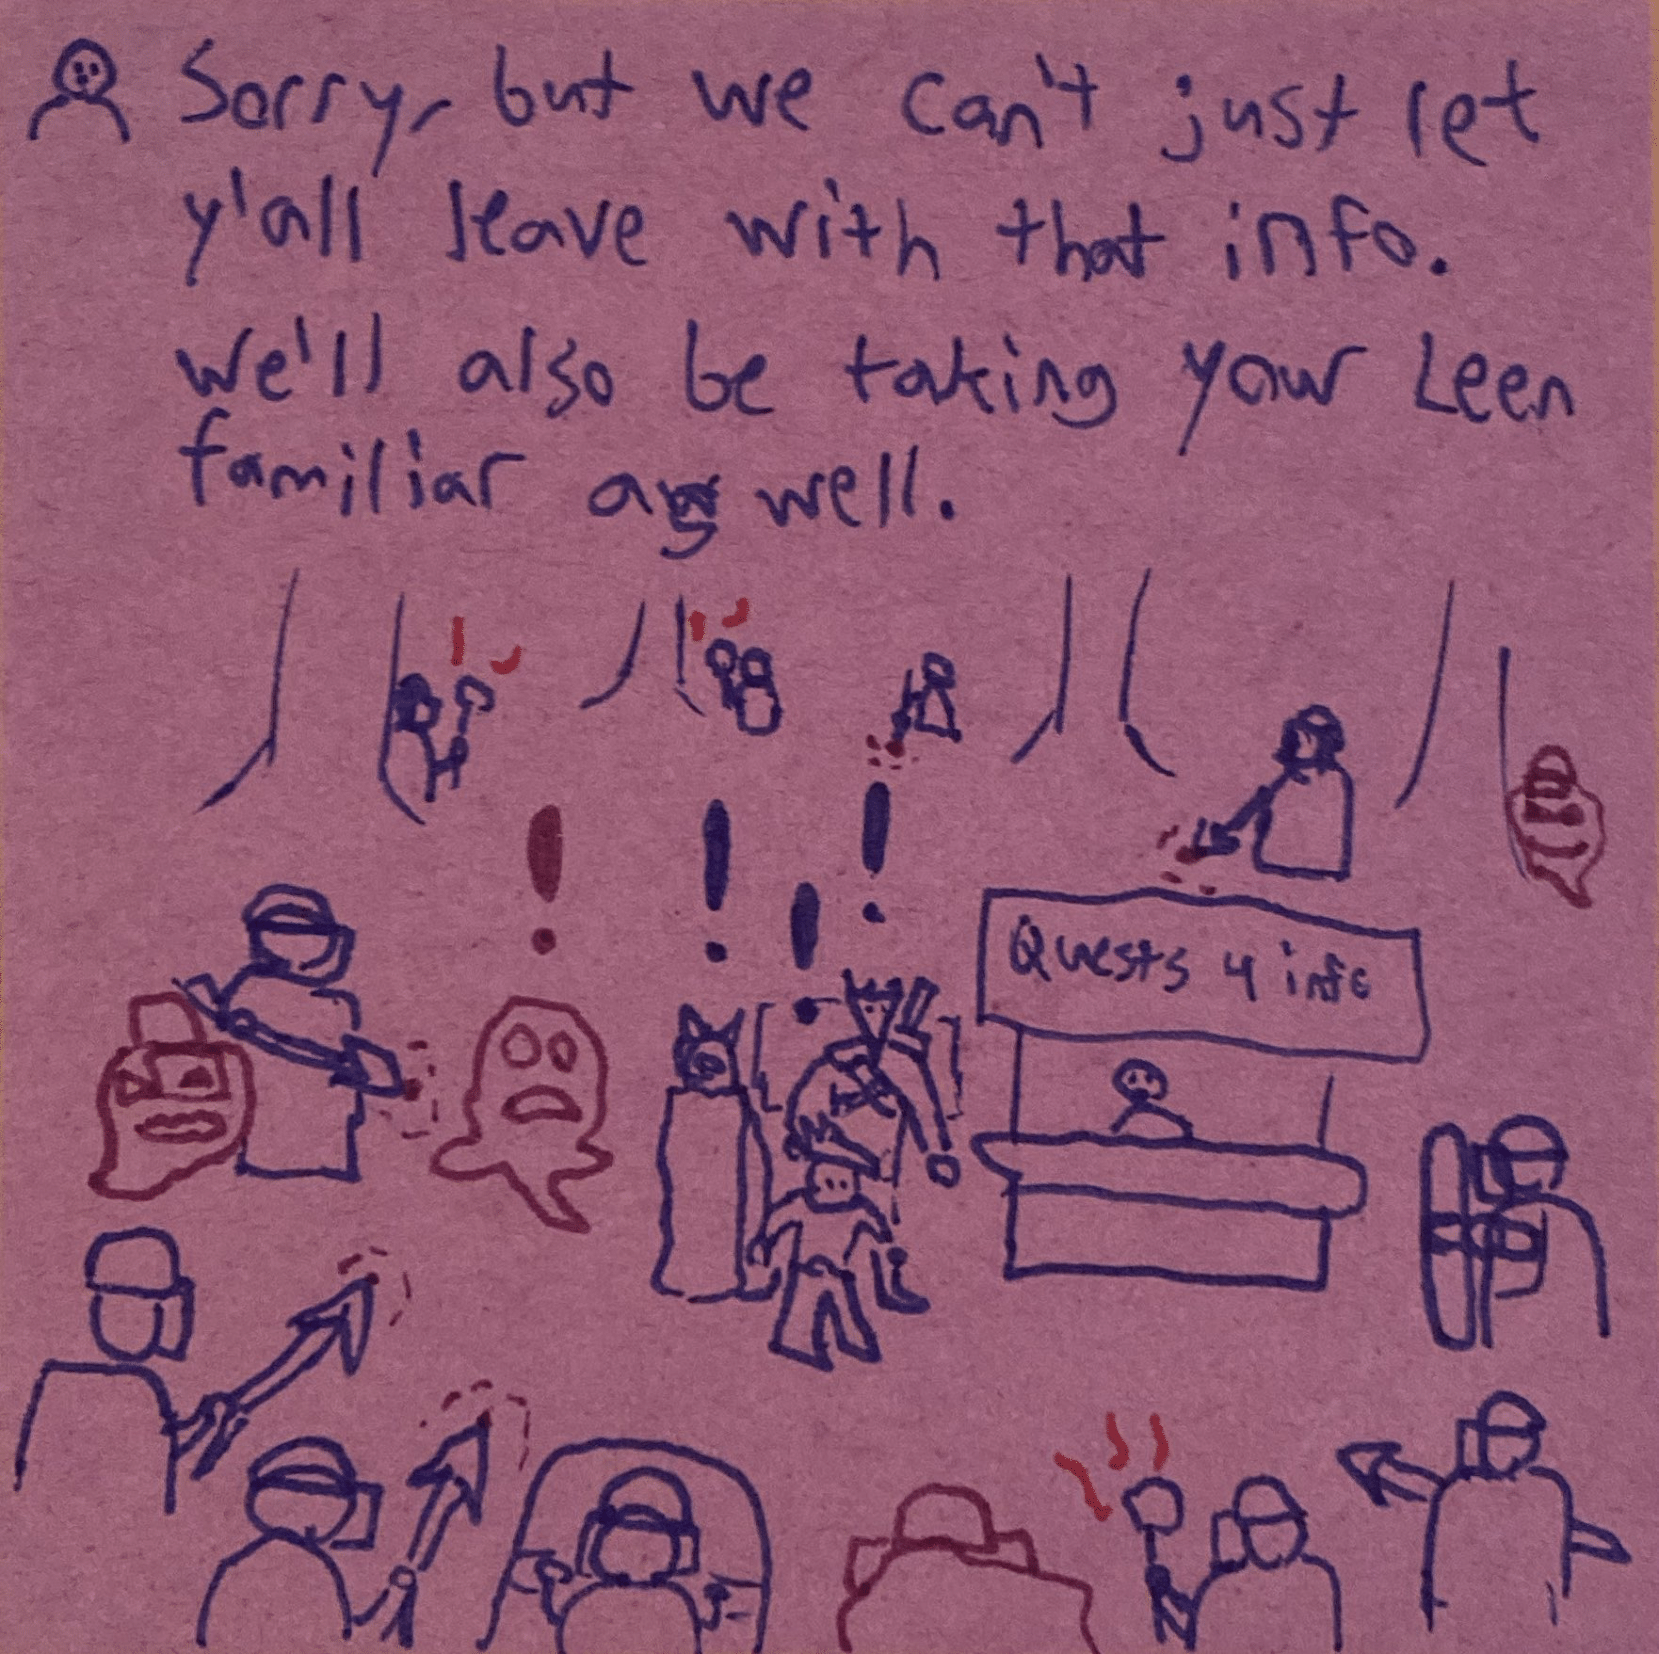 Sorry, but we can't just let
y'all leave with that info.
We'll also be taking your Leen
familiar as well.
Quests 4 info